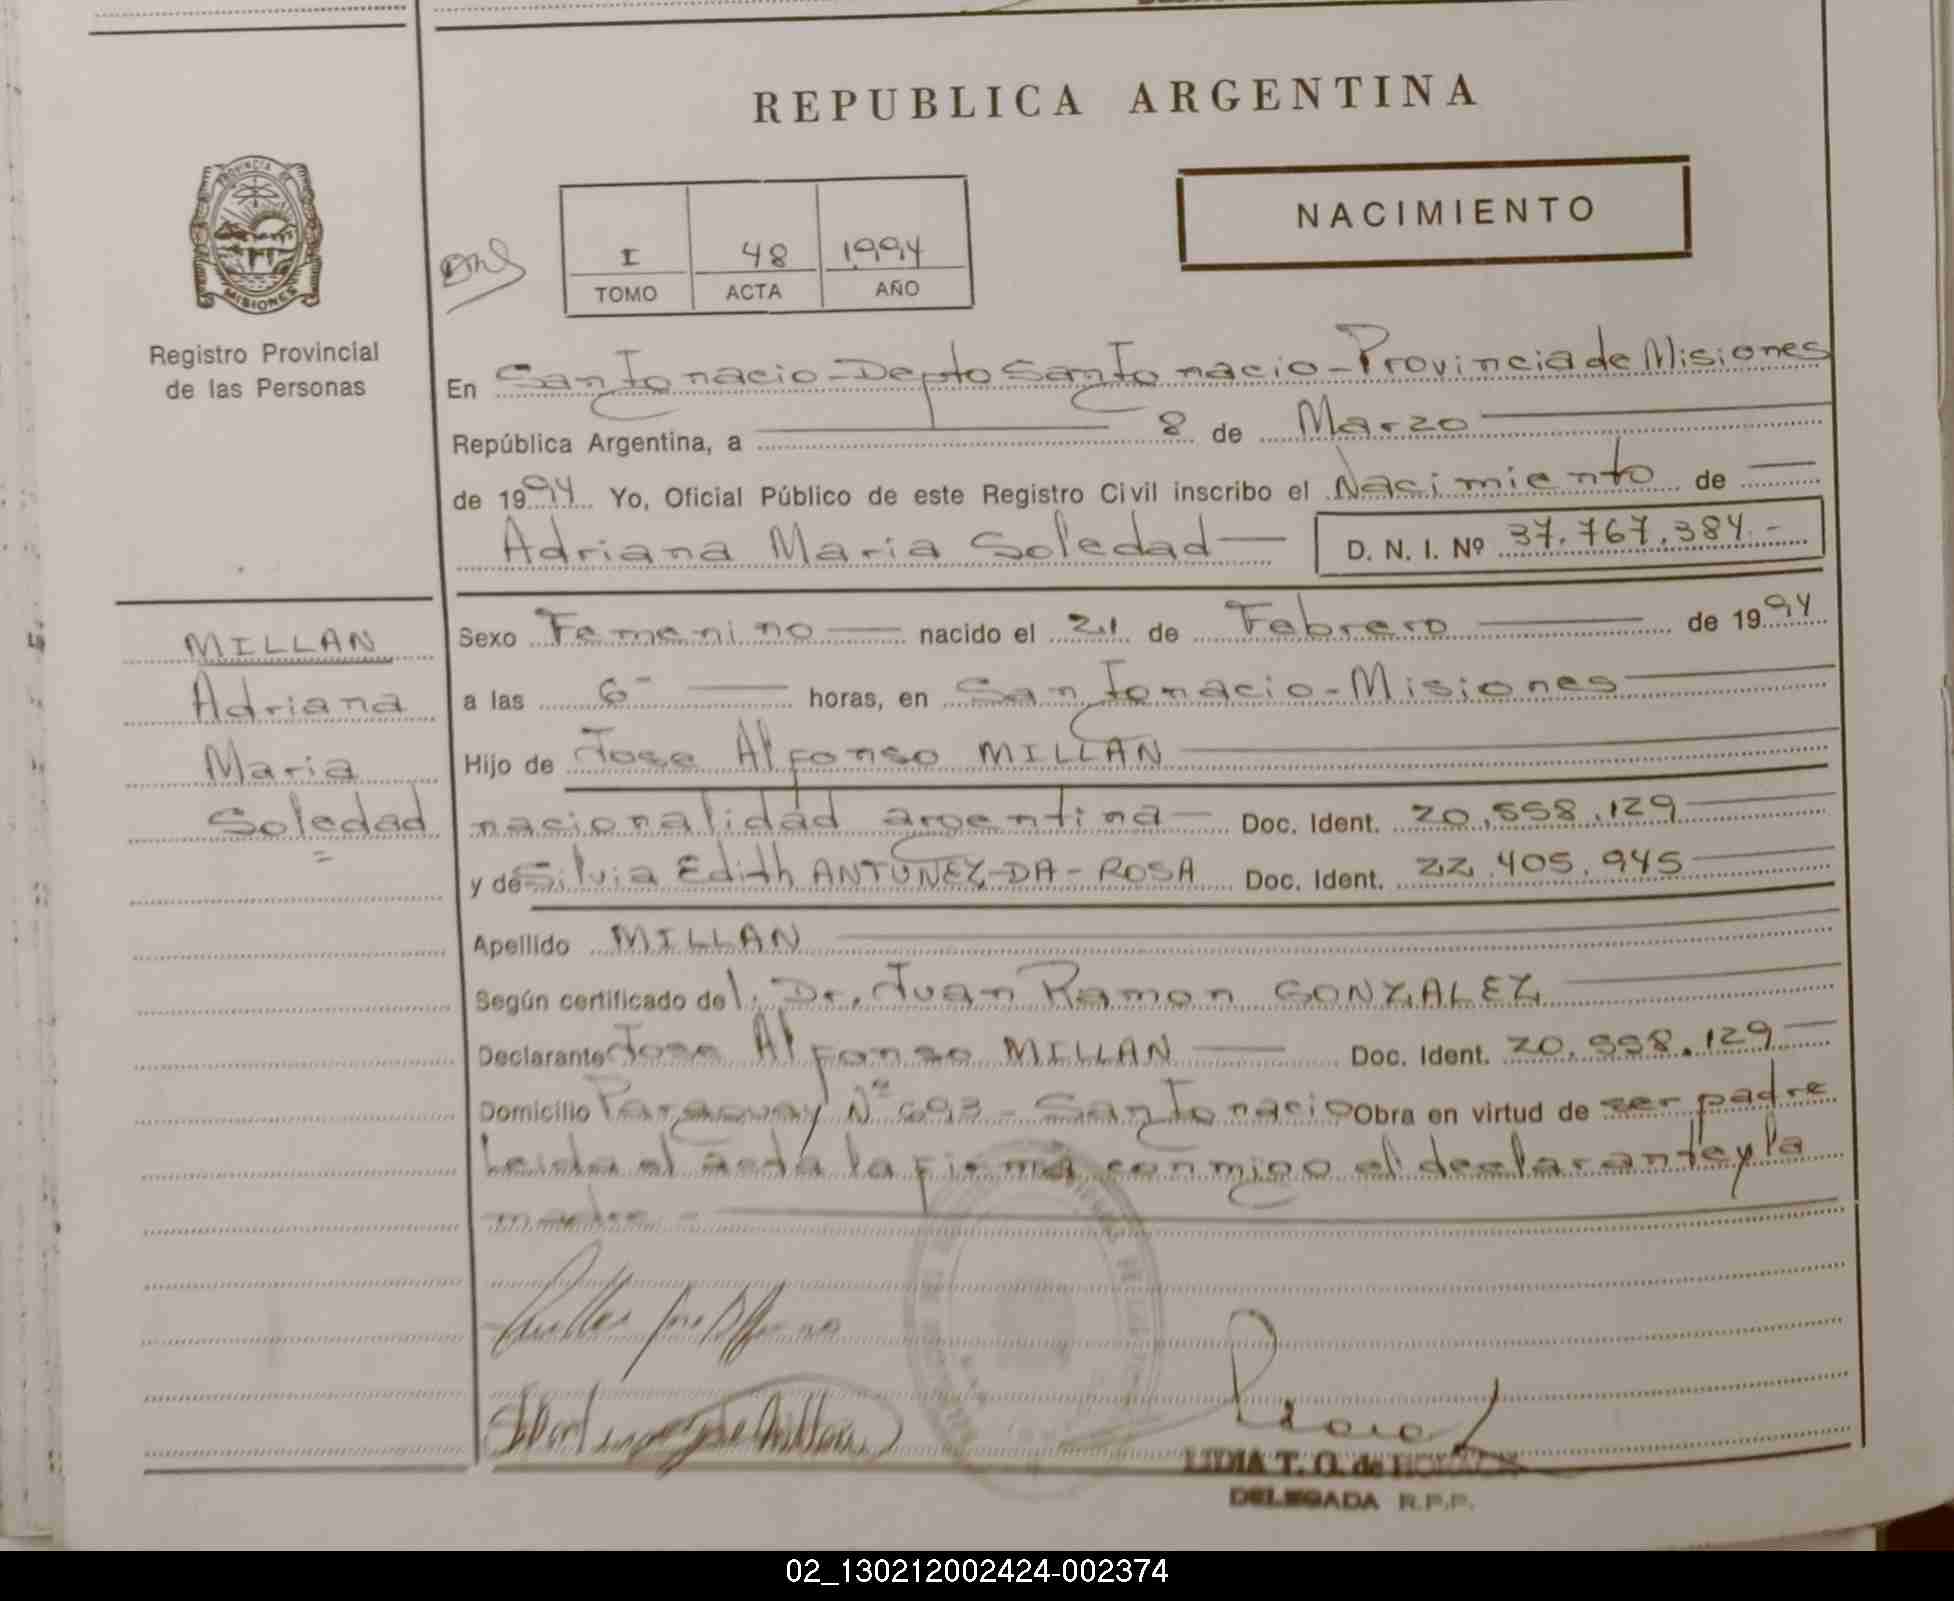 REPUBLICA ARGENTINA
PROVINCIA DE
MISIONES
Registro Provincial
de las Personas
NACIMIENTO
I 48 1994
TOMO ACTA AÑO
En San Ignacio - Depto San Ignacio - Provincia de Misiones
República Argentina, a 8 de Marzo
de 1994 Yo, Oficial Público de este Registro Civil inscribo el Nacimiento de
Adriana Maria Soledad D. N. I. Nº 37.767.384.-
MILLAN
Adriana
Maria
Soledad
Sexo Femenino nacido el 21 de Febrero de 1994
a las 6 horas, en San Ignacio - Misiones
Hijo de Jose Alfonso MILLAN
nacionalidad argentina Doc. Ident. 20.558.129
y de Silvia Edith ANTUNEZ-DA-ROSA Doc. Ident. 22.405.945
Apellido MILLAN
Según certificado del. Dr. Juan Ramon GONZALEZ
Declarante Jose Alfonso MILLAN Doc. Ident. 20.558.129
Domicilio Paraguay Nº 693 - San Ignacio Obra en virtud de ser padre
Leida el acta la firma conmigo el declarante y la
madre.-
LIDIA T. O. de
DELEGADA R.P.P.
02_130212002424-002374